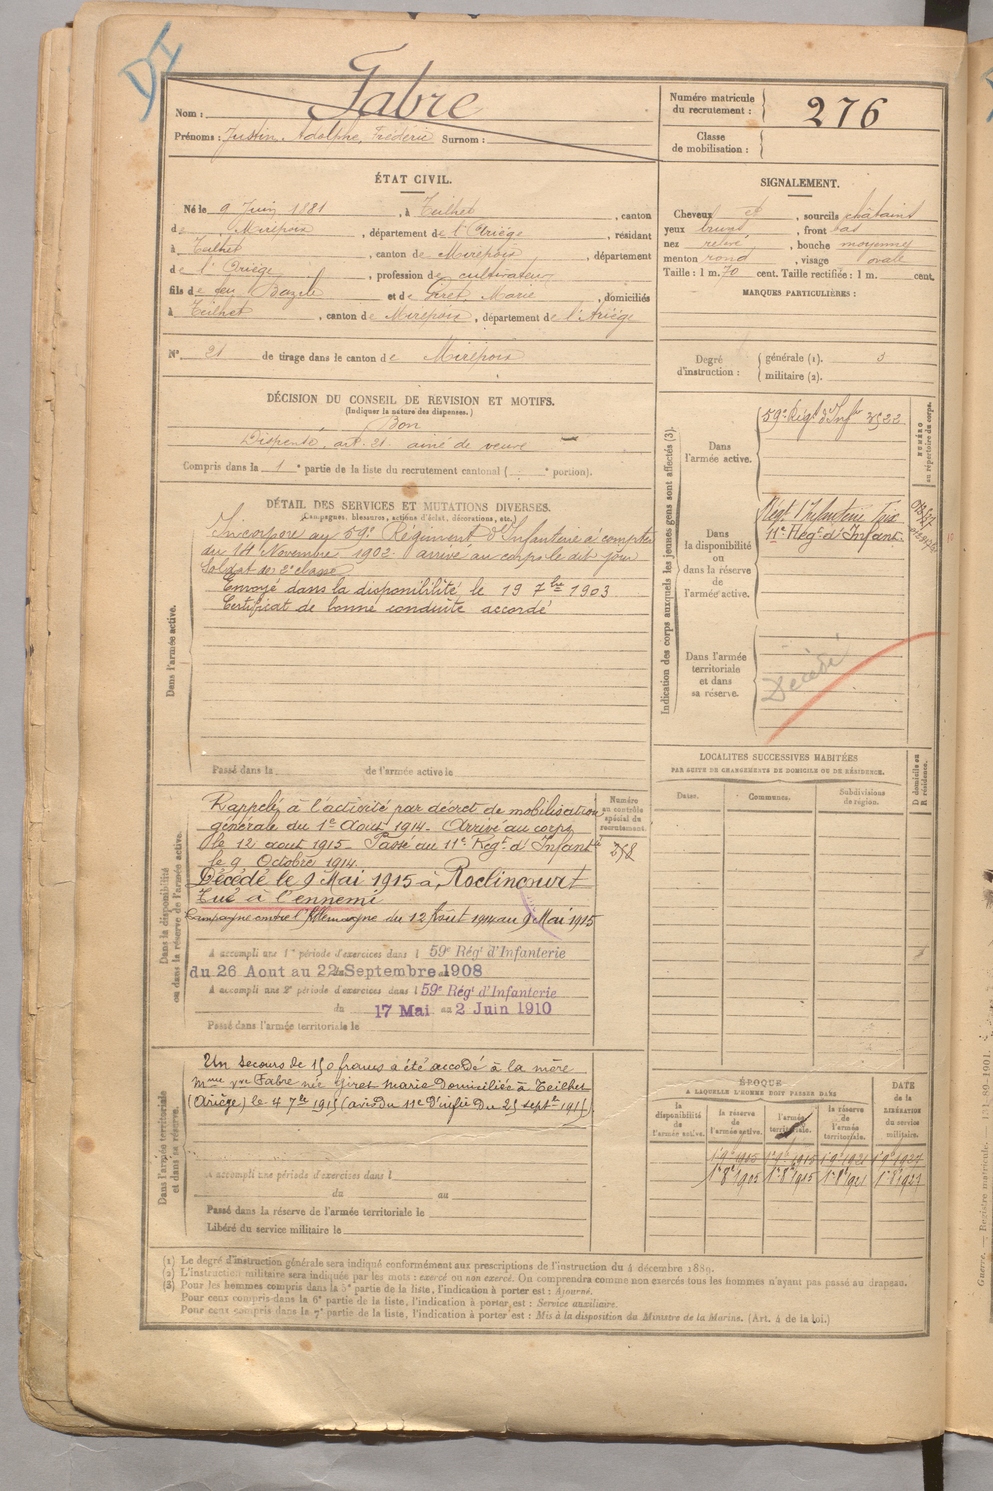 DI
Nom : Fabre
Prénoms : Justin, Adolphe, Fréderic Surnom :
Numéro matricule du recrutement : 276
Classe de mobilisation :
ÉTAT CIVIL.
Né le 9 Juin 1881, à Teilhet, canton
de Mirepoix, département de l'Ariège, résidant
à Teilhet, canton de Mirepoix, département
de l'Ariège, profession de cultivateur
fils de feu Bazile et de Giret Marie, domiciliés
à Teilhet, canton de Mirepoix, département de l'Ariège
N° 21 de tirage dans le canton de Mirepoix
SIGNALEMENT.
Cheveux et, sourcils châtains
yeux bruns, front bas
nez relevé, bouche moyenne
menton rond, visage ovale
Taille : 1 m. 70 cent. Taille rectifiée : 1 m. cent.
MARQUES PARTICULIÈRES :
Degré d'instruction : générale (1). 3
militaire (2).
DÉCISION DU CONSEIL DE REVISION ET MOTIFS.
(Indiquer la nature des dispenses.)
Bon
Dispensé, art. 21. ainé de veuve
Compris dans la 1e partie de la liste du recrutement cantonal ( e portion).
DÉTAIL DES SERVICES ET MUTATIONS DIVERSES.
(Campagnes, blessures, actions d'éclat, décorations, etc.)
Dans l'armée active.
Incorporé au 59e Régiment d'Infanterie à compter
du 14 Novembre 1902 arrivé au corps le dit jour
Soldat de 2e classe
Envoyé dans la disponibilité le 19 7bre 1903
Certificat de bonne conduite accordé
Passé dans la de l'armée active le
Indication des corps auxquels les jeunes gens sont affectés (3).
NUMÉRO au répertoire du corps.
Dans l'armée active.
59e Régt d'Infie 3522
Dans la disponibilité ou dans la réserve de l'armée active.
Régt d'Infanterie Foix
11e Régt d'Infant.
Dans l'armée territoriale et dans sa réserve.
Décédé
LOCALITÉS SUCCESSIVES HABITÉES
PAR SUITE DE CHANGEMENTS DE DOMICILE OU DE RÉSIDENCE.
Dates.
Communes.
Subdivisions de région.
D domicile ou R résidence.
Dans la disponibilité ou dans la réserve de l'armée active.
Numéro au contrôle spécial du recrutement.
Rappelé à l'activité par décret de mobilisation
générale du 1er Aout 1914. Arrivé au corps
le 12 aout 1915. Passé au 11e Régt d'Infantie
le 9 Octobre 1914.
Décédé le 9 Mai 1915 à Roclincourt
Tué à l'ennemi
Campagne contre l'Allemagne du 12 Aout 1914 au 9 Mai 1915
A accompli une 1re période d'exercices dans l 59e Rég' d'Infanterie
du 26 Aout au 22 Septembre 1908
A accompli une 2e période d'exercices dans l 59e Rég' d'Infanterie
du 17 Mai au 2 Juin 1910
Passé dans l'armée territoriale le
Dans l'armée territoriale et dans sa réserve.
Un secours de 150 francs a été accordé à la mère
Mme vve Fabre née Giret Marie Domiciliée à Teilhet
(Ariège) le 4 7bre 1915 (avis du 11e d'infie du 25 septbre 1915)
A accompli une période d'exercices dans l
du au
Passé dans la réserve de l'armée territoriale le
Libéré du service militaire le
ÉPOQUE
A LAQUELLE L'HOMME DOIT PASSER DANS
la disponibilité de l'armée active.
la réserve de l'armée active.
l'armée territoriale.
la réserve de l'armée territoriale.
DATE de la LIBÉRATION du service militaire.
1r 9e 1905 1r 9e 1915 1r 9e 1921 1r 9e 1927
1r 8e 1905 1r 8e 1915 1r 8e 1921 1r 8e 1927
(1) Le degré d'instruction générale sera indiqué conformément aux prescriptions de l'instruction du 4 décembre 1889.
(2) L'instruction militaire sera indiquée par les mots : exercé ou non exercé. On comprendra comme non exercés tous les hommes n'ayant pas passé au drapeau.
(3) Pour les hommes compris dans la 5e partie de la liste, l'indication à porter est : Ajourné.
Pour ceux compris dans la 6e partie de la liste, l'indication à porter est : Service auxiliaire.
Pour ceux compris dans la 7e partie de la liste, l'indication à porter est : Mis à la disposition du Ministre de la Marine. (Art. 4 de la loi.)
Guerre. — Registre matricule. — 131-89-1901.